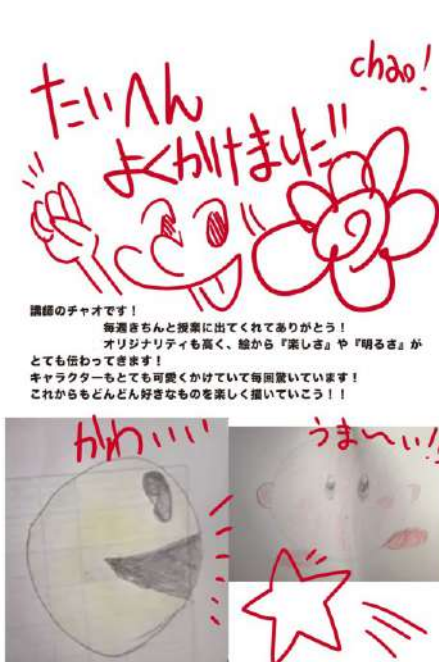 chao!
たいへん
よくかけました!!
講師のチャオです！
毎週きちんと授業に出てくれてありがとう！
オリジナリティも高く、絵から『楽しさ』や『明るさ』が
とても伝わってきます！
キャラクターもとても可愛くかけていて毎回驚いています！
これからもどんどん好きなものを楽しく描いていこう！！
かわいいい
うま〜い!!